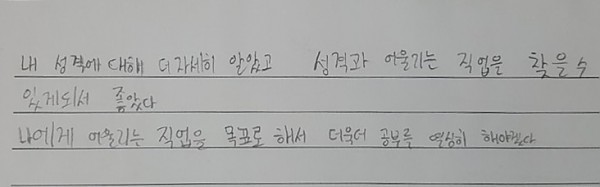 내 성격에 대해 더 자세히 알았고 성격과 어울리는 직업을 찾을 수
있게되서 좋았다
나에게 어울리는 직업을 목표로 해서 더욱더 공부를 열심히 해야겠다